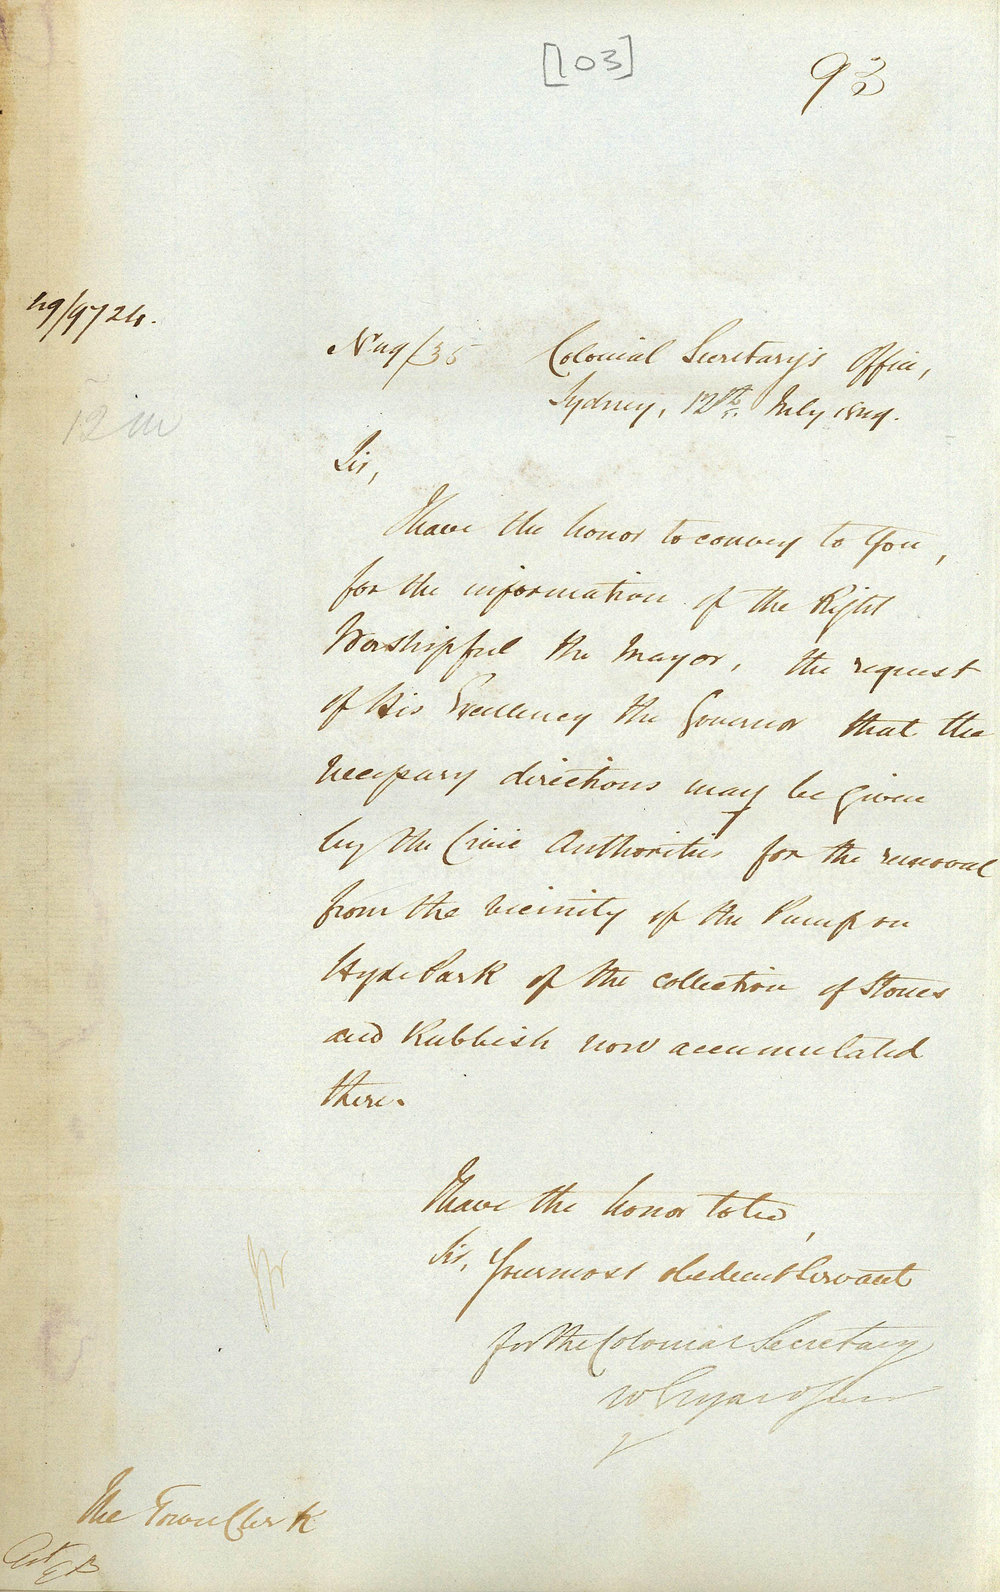 [103]
93
49/9724.
No 49/135 Colonial Secretary's Office,
Sydney, 12th July 1849.
Sir,
I have the honor to convey to You,
for the information of the Right
Worshipful the Mayor, the request
of His Excellency the Governor that the
necessary directions may be given
by the Civic Authorities for the removal
from the vicinity of the Pump on
Hyde Park of the collection of Stones
and Rubbish now accumulated
there.
I have the honor to be,
Sir, Your most obedient Servant
for the Colonial Secretary
W Elyard Junr
The Town Clerk